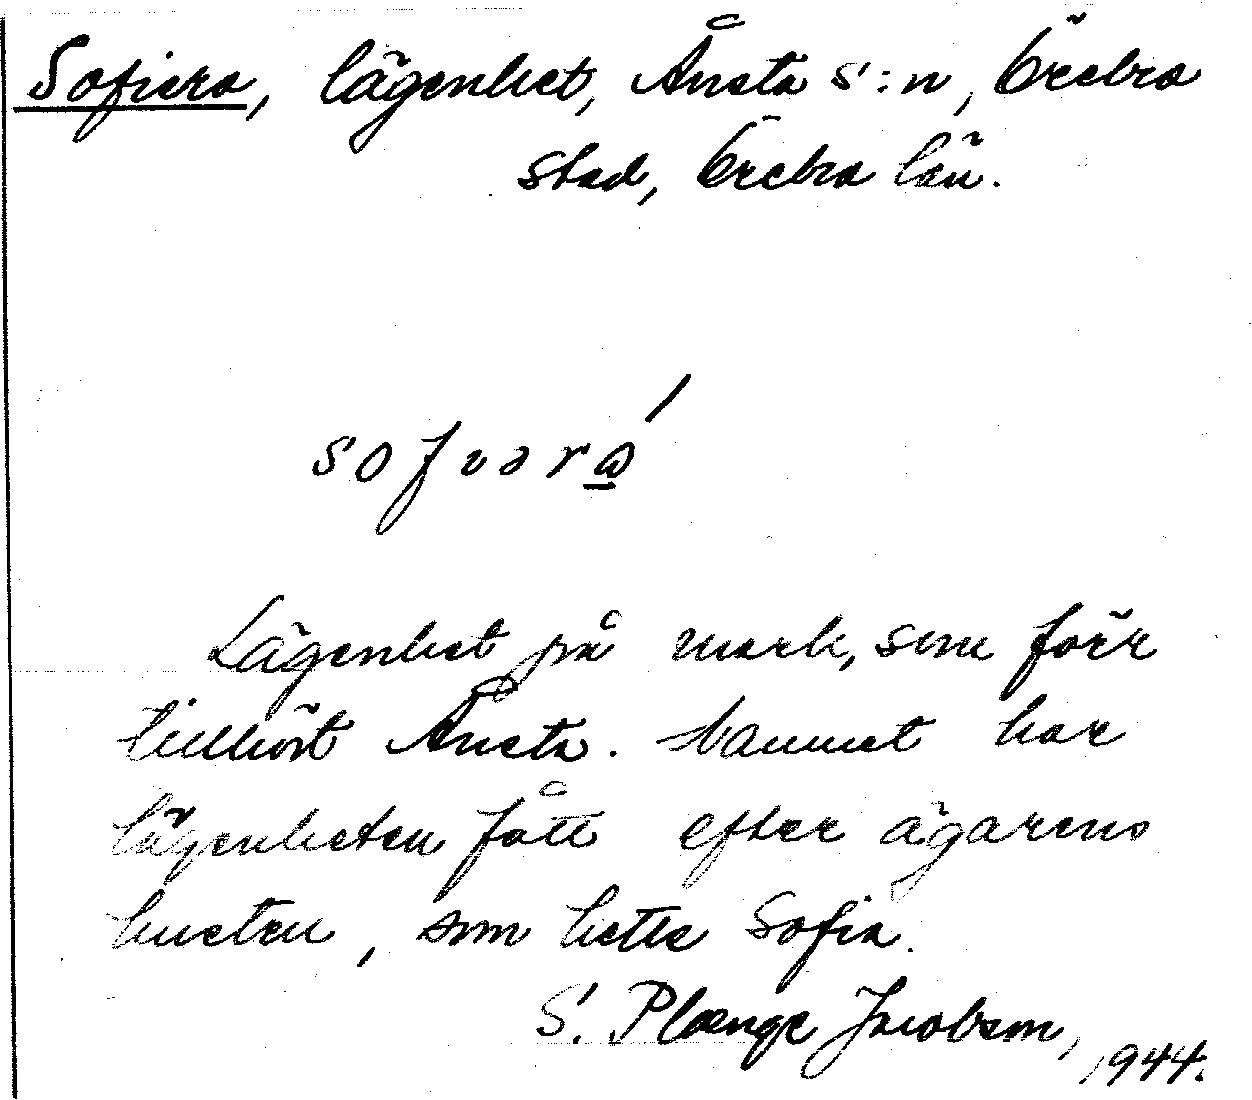 Sofiero, lägenhet, Ånsta s:n, Örebro
stad, Örebro län.
sofıərώ̲
Lägenhet på mark, som förr
tillhört Ånsta. Namnet har
lägenheten fått efter ägarens
hustru, som hette Sofia.
S. Plænge Jacobson,
1944.